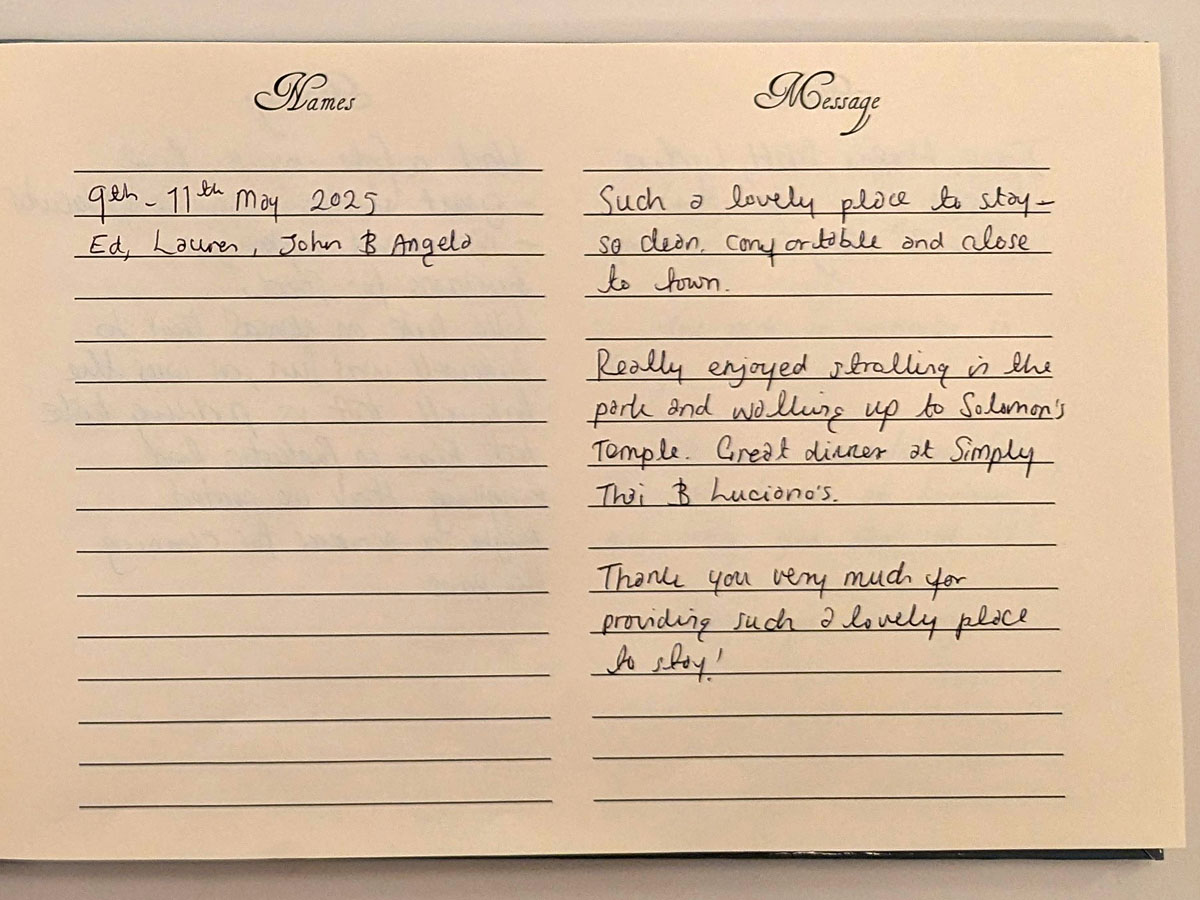 Names
9th - 11th May 2025
Ed, Lauren, John & Angela
Message
Such a lovely place to stay -
so clean, comfortable and close
to town.
Really enjoyed strolling in the
park and walking up to Solomon's
Temple. Great dinner at Simply
Thai & Luciano's.
Thank you very much for
providing such a lovely place
to stay!